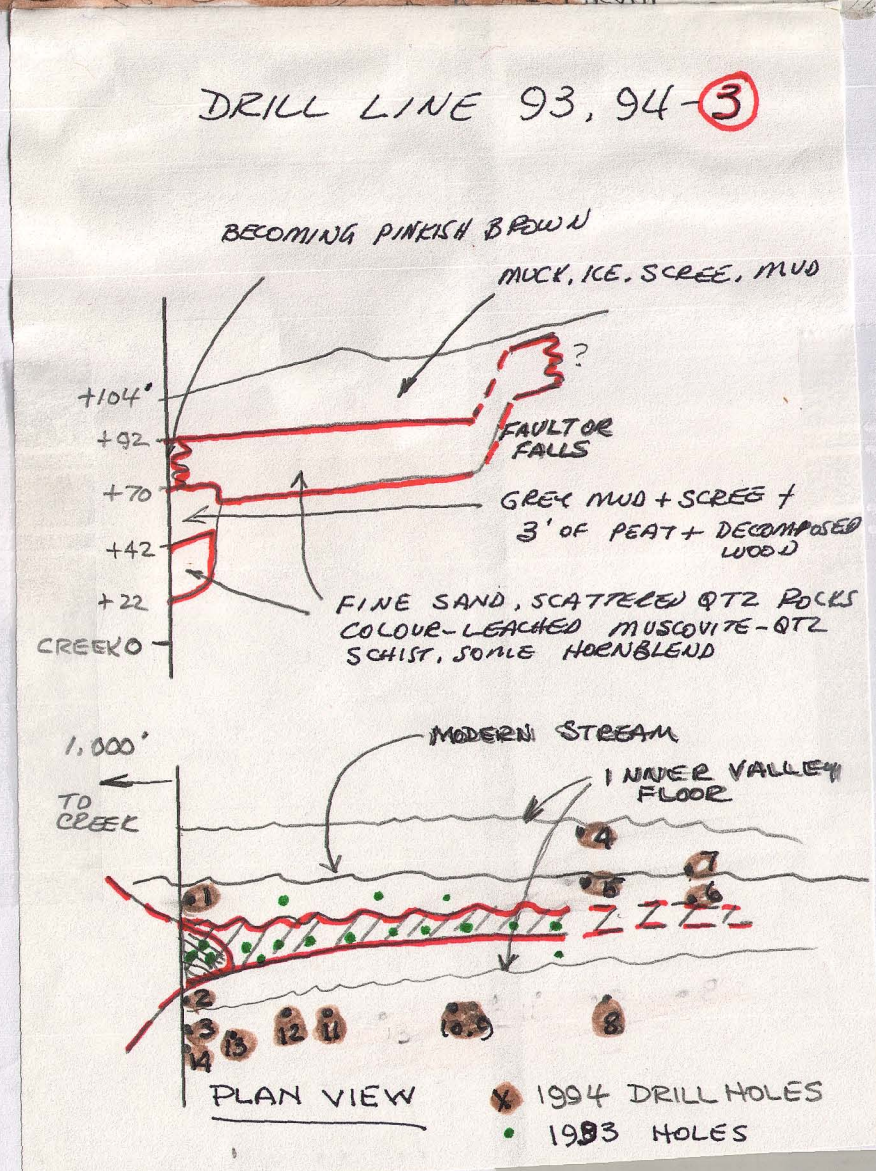 DRILL LINE 93, 94-3
BECOMING PINKISH BROWN
MUCK, ICE, SCREE, MUD
+104'
?
+92
FAULT OR
FALLS
+70
GREY MUD + SCREE +
3' OF PEAT + DECOMPOSED
WOOD
+42
+22
FINE SAND, SCATTERED QTZ ROCKS
COLOUR-LEACHED MUSCOVITE-QTZ
SCHIST, SOME HORNBLEND
CREEK 0
1,000'
MODERN STREAM
INNER VALLEY
FLOOR
TO
CREEK
4
7
5
6
1
2
3
14
13
12
11
10.9
8
PLAN VIEW
X 1994 DRILL HOLES
1993 HOLES